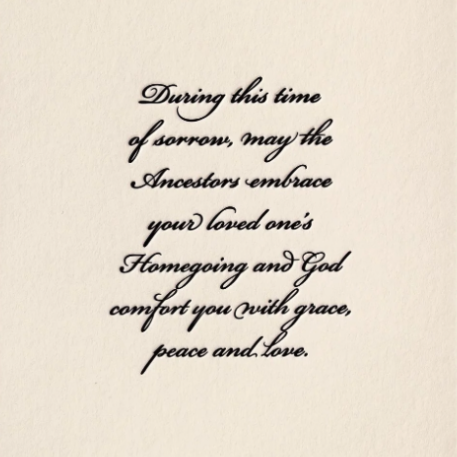 During this time
of sorrow, may the
Ancestors embrace
your loved one's
Homegoing and God
comfort you with grace,
peace and love.